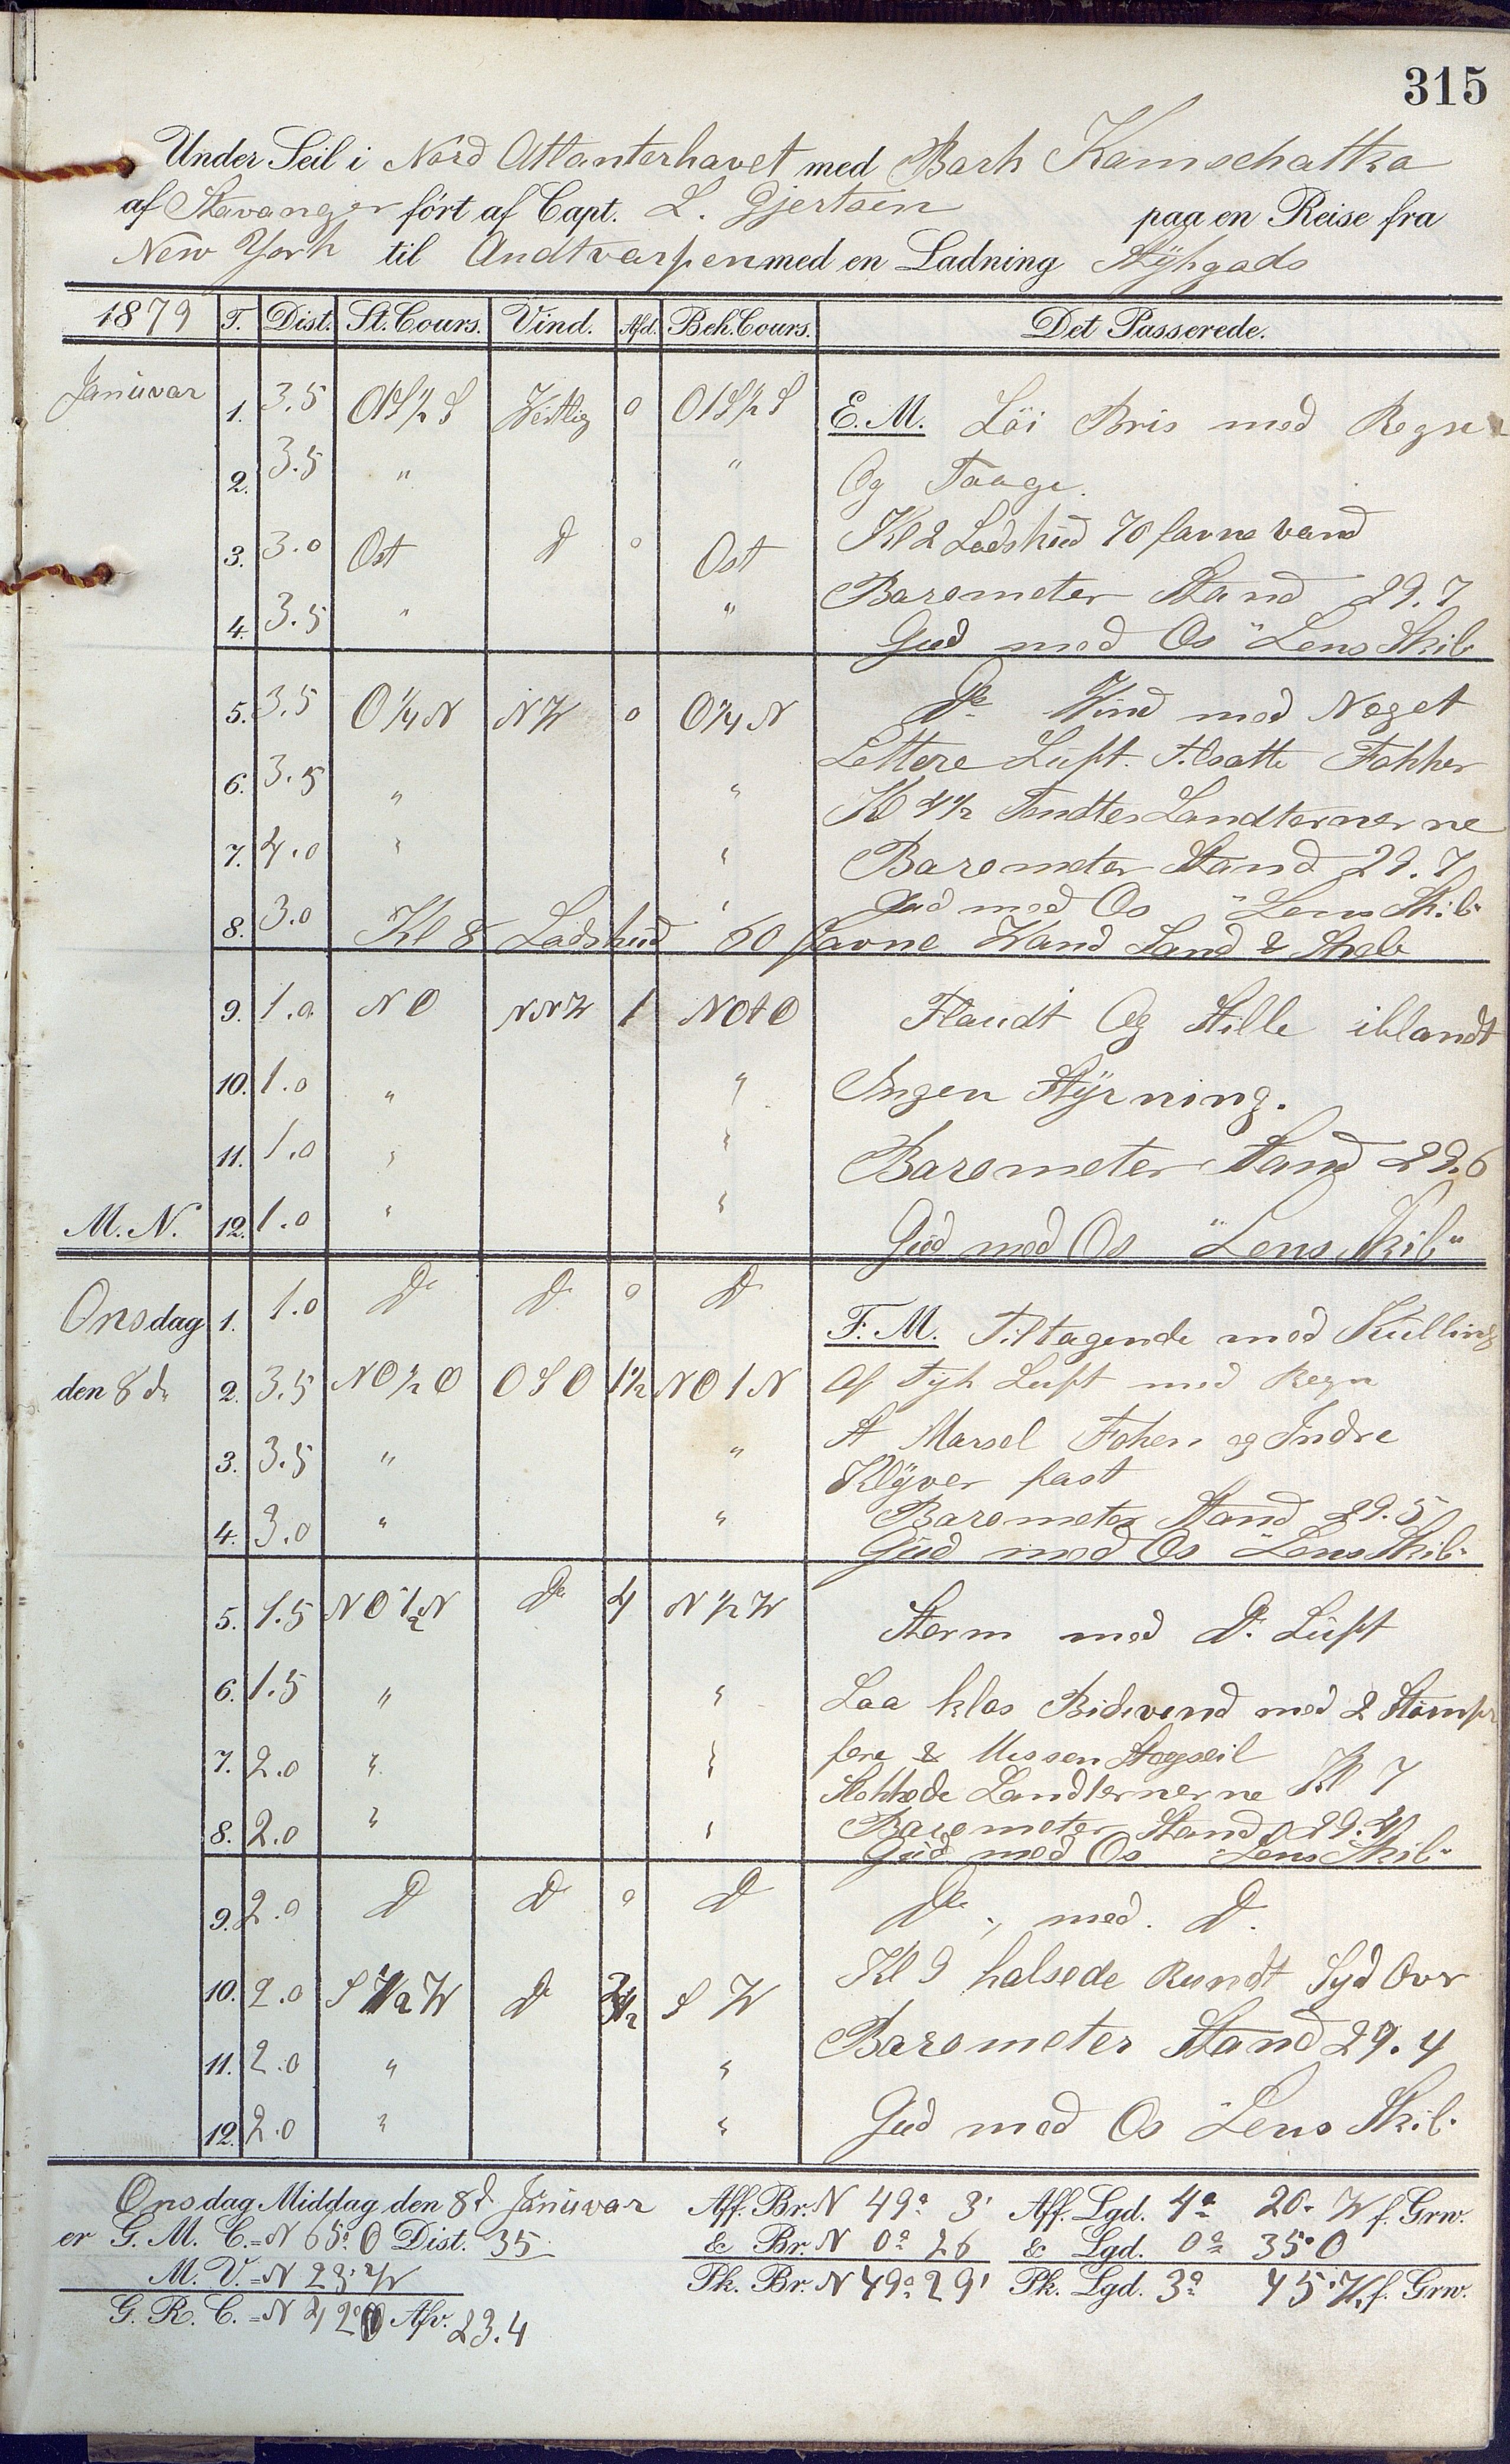 315
Under Seil i Nord Atlanterhavet med Bark Kamschatka
af Stavanger ført af Capt. L. Gjertsen paa en Reise fra
New York til Andtverpen med en Ladning Stÿkgods
1879 T. Dist. St. Cours. Vind. Afd. Beh. Cours. Det Passerede.
Januvar 1. 3.5 O1S½S Vestlig 0 O1S½S E.M. Löi Bris med Regn
2. 3.5 " " Og Taage.
3. 3.0 Ost Do 0 Ost Kl 2 Lodskud 70 favne vand
4. 3.5 " " Barometer Stand 29.7
Gud med Os "Lens Skib"
5. 3.5 O¼N NW 0 O¼N Do Wind med Noget
6. 3.5 " " Lettere Luft. Tilsatte Fokken
Kl 4½ Tendtes Landternerne
7. 4.0 " " Barometer Stand 29.7
8. 3.0 " Gud med Os "Lens Skib"
Kl 8 Lodskud 60 favne Wand Sand & Skele
9. 1.0 NO NNW 1 NOtO Flaudt Og Stille iblandt
10. 1.0 " " Ingen Stÿrning.
11. 1.0 " " Barometer Stand 29.6
M.N. 12. 1.0 " " Gud med Os "Lens Skib"
Onsdag 1. 1.0 Do Do 0 Do F.M. Tiltagende med Kulling
den 8de 2. 3.5 NO½O OSO 1½ NO1N Af Tÿk Luft med Regn
3. 3.5 " " St Marsel Foken og Indre
Klÿver fast
4. 3.0 " " Barometer Stand 29.5
Gud med Os "Lens Skib"
5. 1.5 NO½N Do 4 N½W Storm med Do Luft
6. 1.5 " " Laa klos Bidevend med 2 Stump
7. 2.0 " " fore & Messen Stagseil
Slokkede Landternerne Kl 7
8. 2.0 " " Barometer Stand 29.4
Gud med Os "Lens Skib"
9. 2.0 Do Do 0 Do Do " med Do
10. 2.0 S½W Do 3½ S W Kl 9 halsede Rundt Syd Over
11. 2.0 " " Barometer Stand 29.4
12. 2.0 " " Gud med Os "Lens Skib"
Onsdag Middag den 8d Januvar Aff. Br. N 49° 3' Aff. Lgd. 4° 20' W f. Grw.
er G. M. C. = N 65° O Dist. 35 & Br. N 0° 26 & Lgd. 0° 35' O
M. V. = N 23° W Pk. Br. N 49° 29' Pk. Lgd. 3° 45' W. f. Grw.
G. R. C. = N 42° O Afv. 23.4